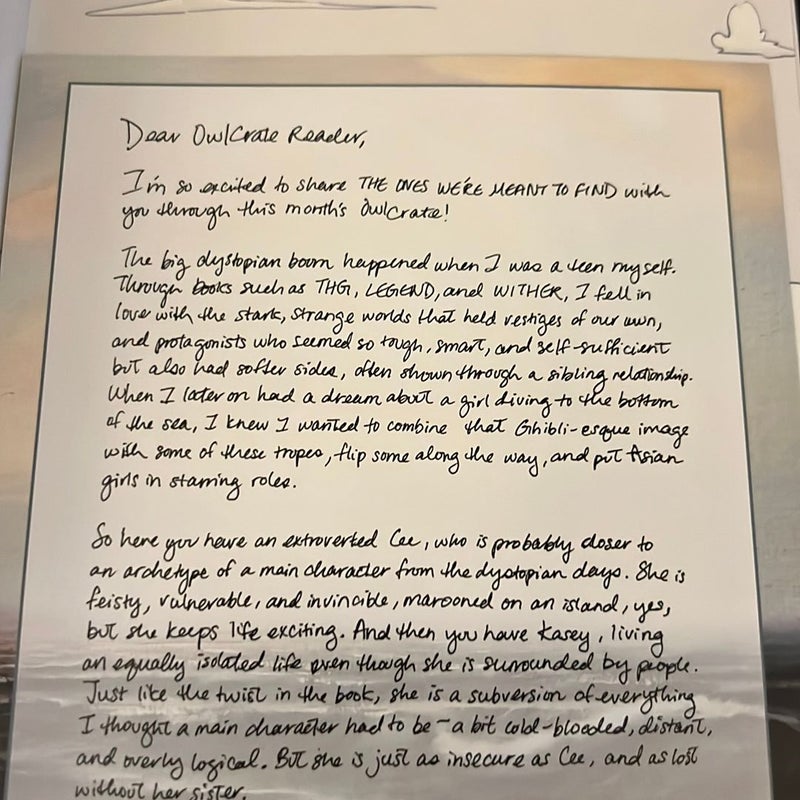 Dear OwlCrate Reader,
I'm so excited to share THE ONES WE'RE MEANT TO FIND with
you through this month's OwlCrate!
The big dystopian boom happened when I was a teen myself.
Through books such as THG, LEGEND, and WITHER, I fell in
love with the stark, strange worlds that held vestiges of our own,
and protagonists who seemed so tough, smart, and self-sufficient
but also had softer sides, often shown through a sibling relationship.
When I later on had a dream about a girl diving to the bottom
of the sea, I knew I wanted to combine that Ghibli-esque image
with some of these tropes, flip some along the way, and put Asian
girls in starring roles.
So here you have an extroverted Cee, who is probably closer to
an archetype of a main character from the dystopian days. She is
feisty, vulnerable, and invincible, marooned on an island, yes,
but she keeps life exciting. And then you have Kasey, living
an equally isolated life even though she is surrounded by people.
Just like the twist in the book, she is a subversion of everything
I thought a main character had to be – a bit cold-blooded, distant,
and overly logical. But she is just as insecure as Cee, and as lost
without her sister.